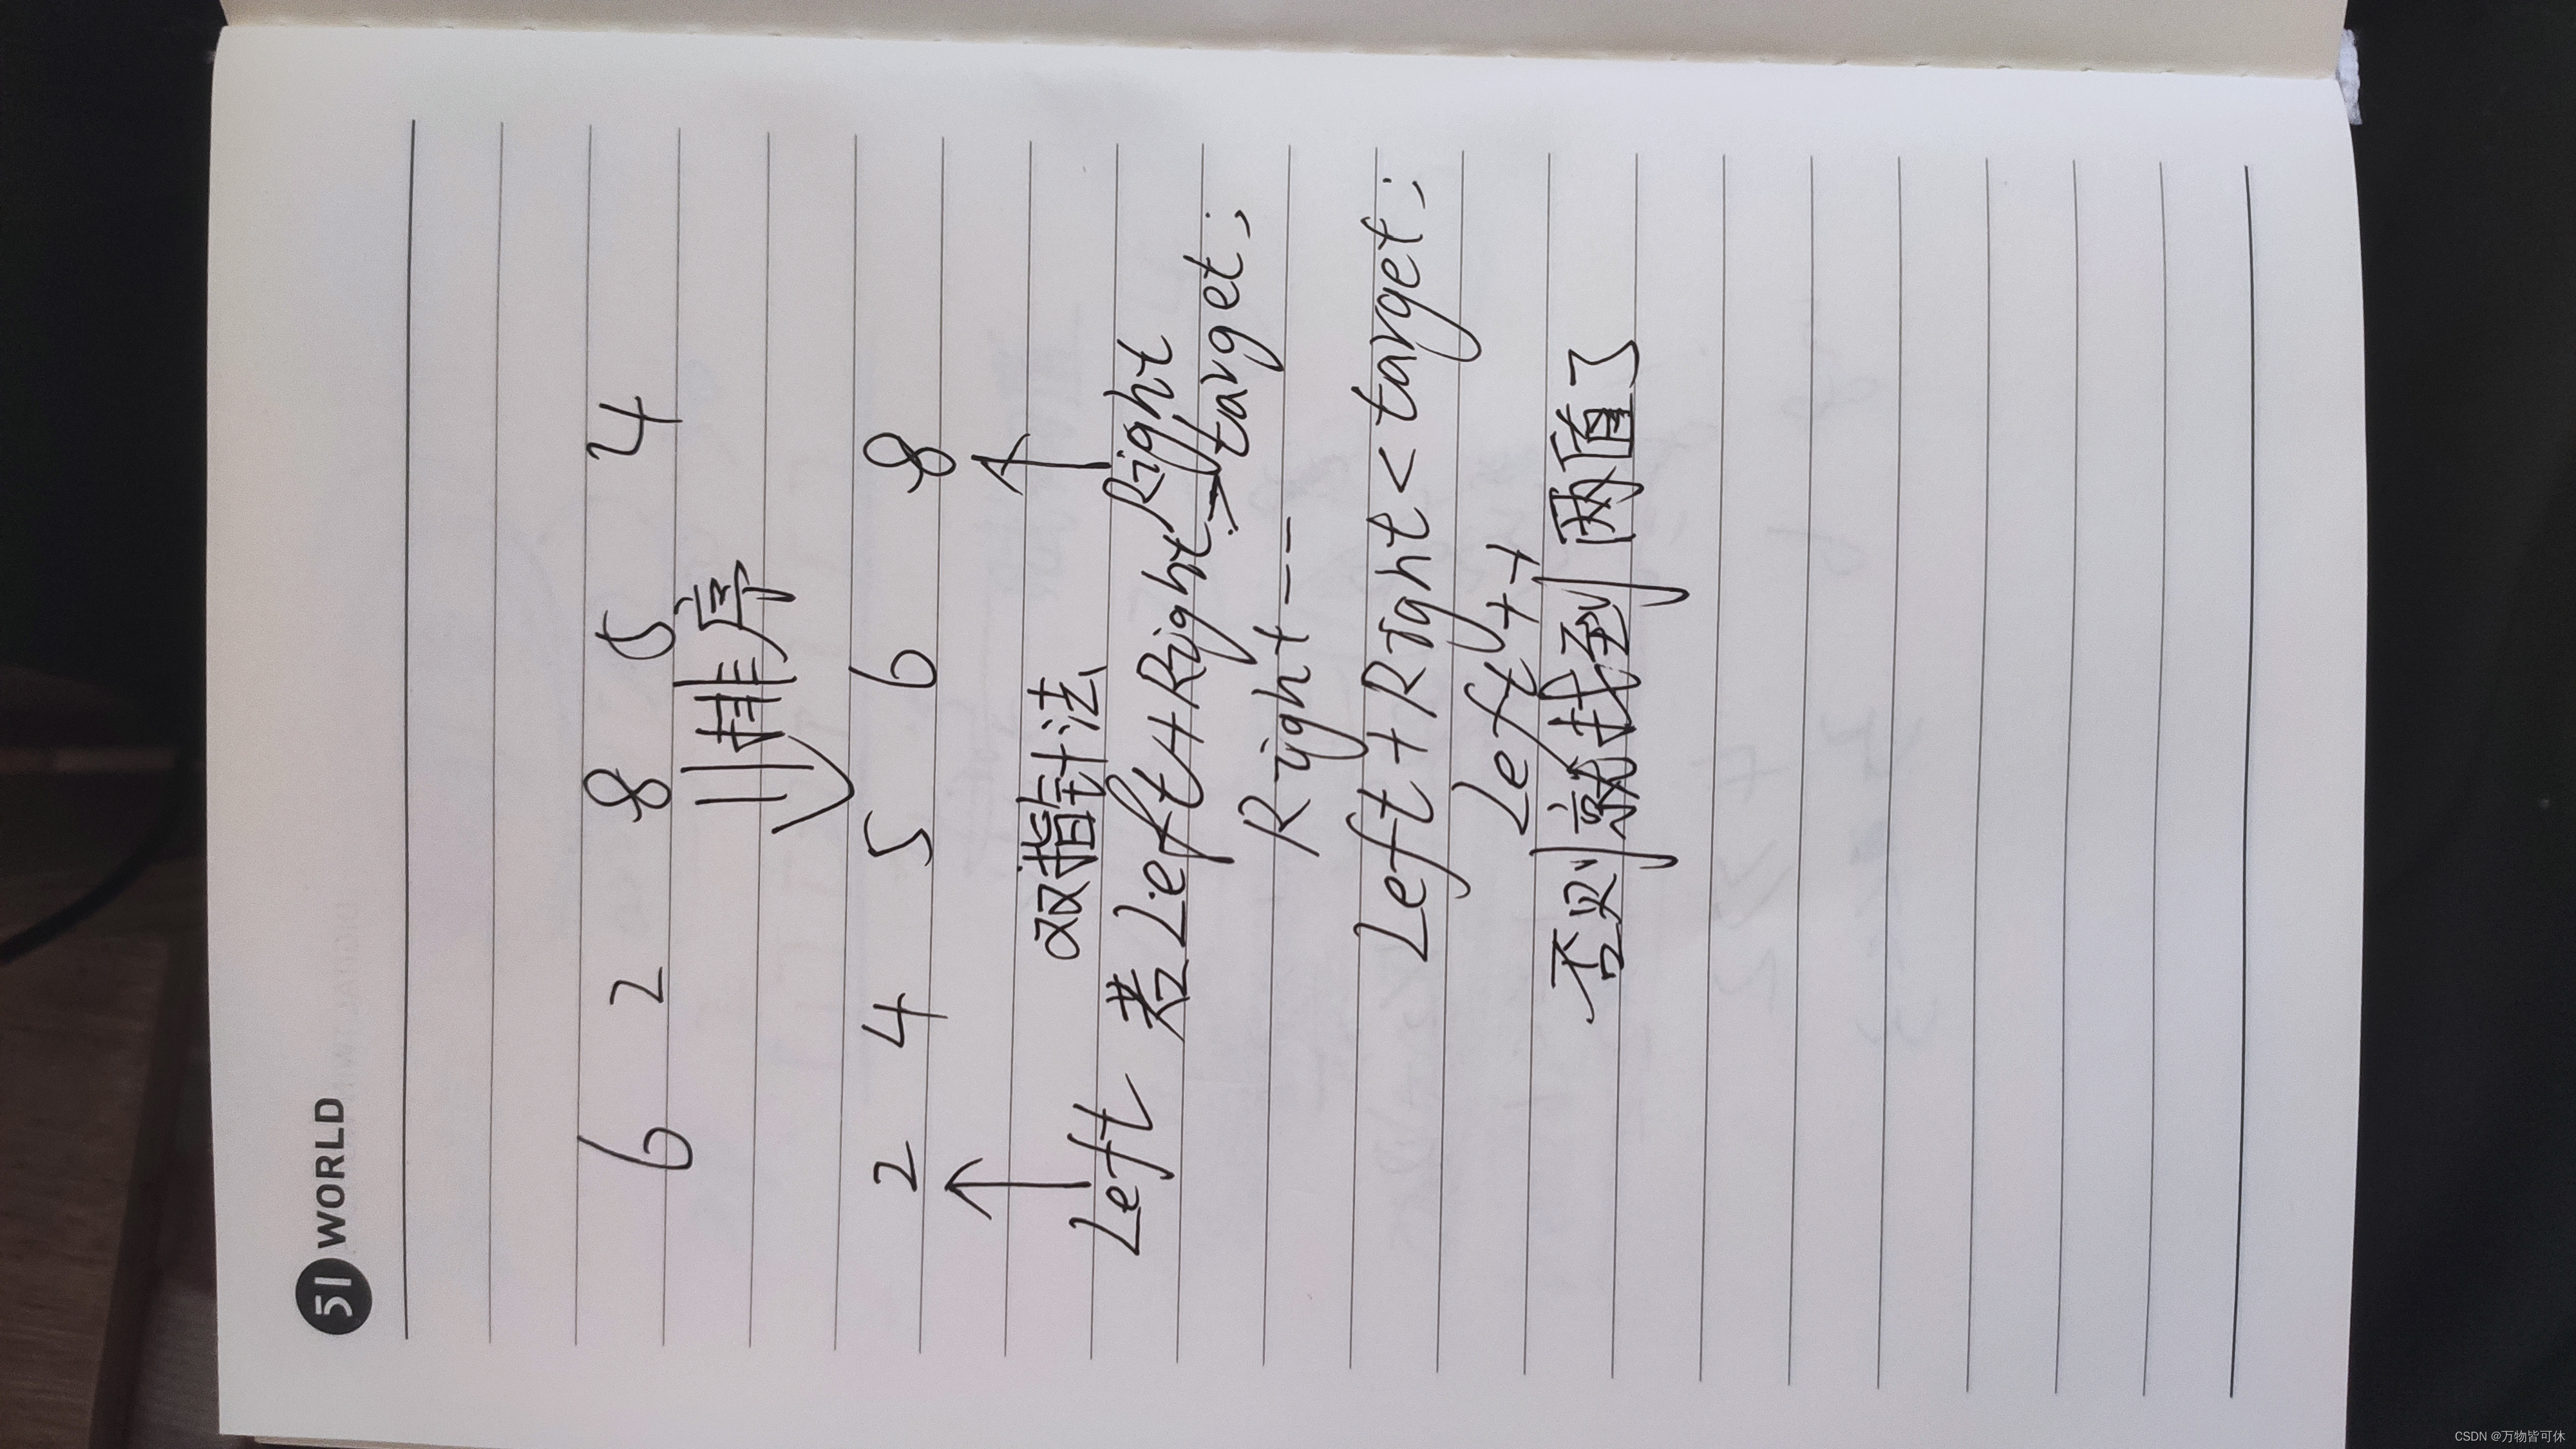 51 WORLD
6 2 8 5 4
排序
2 4 5 6 8
双指针法
Left Right
若 Left+Right > target;
Right--
Left+Right < target;
Left++
否则就找到两值了
CSDN @万物皆可休